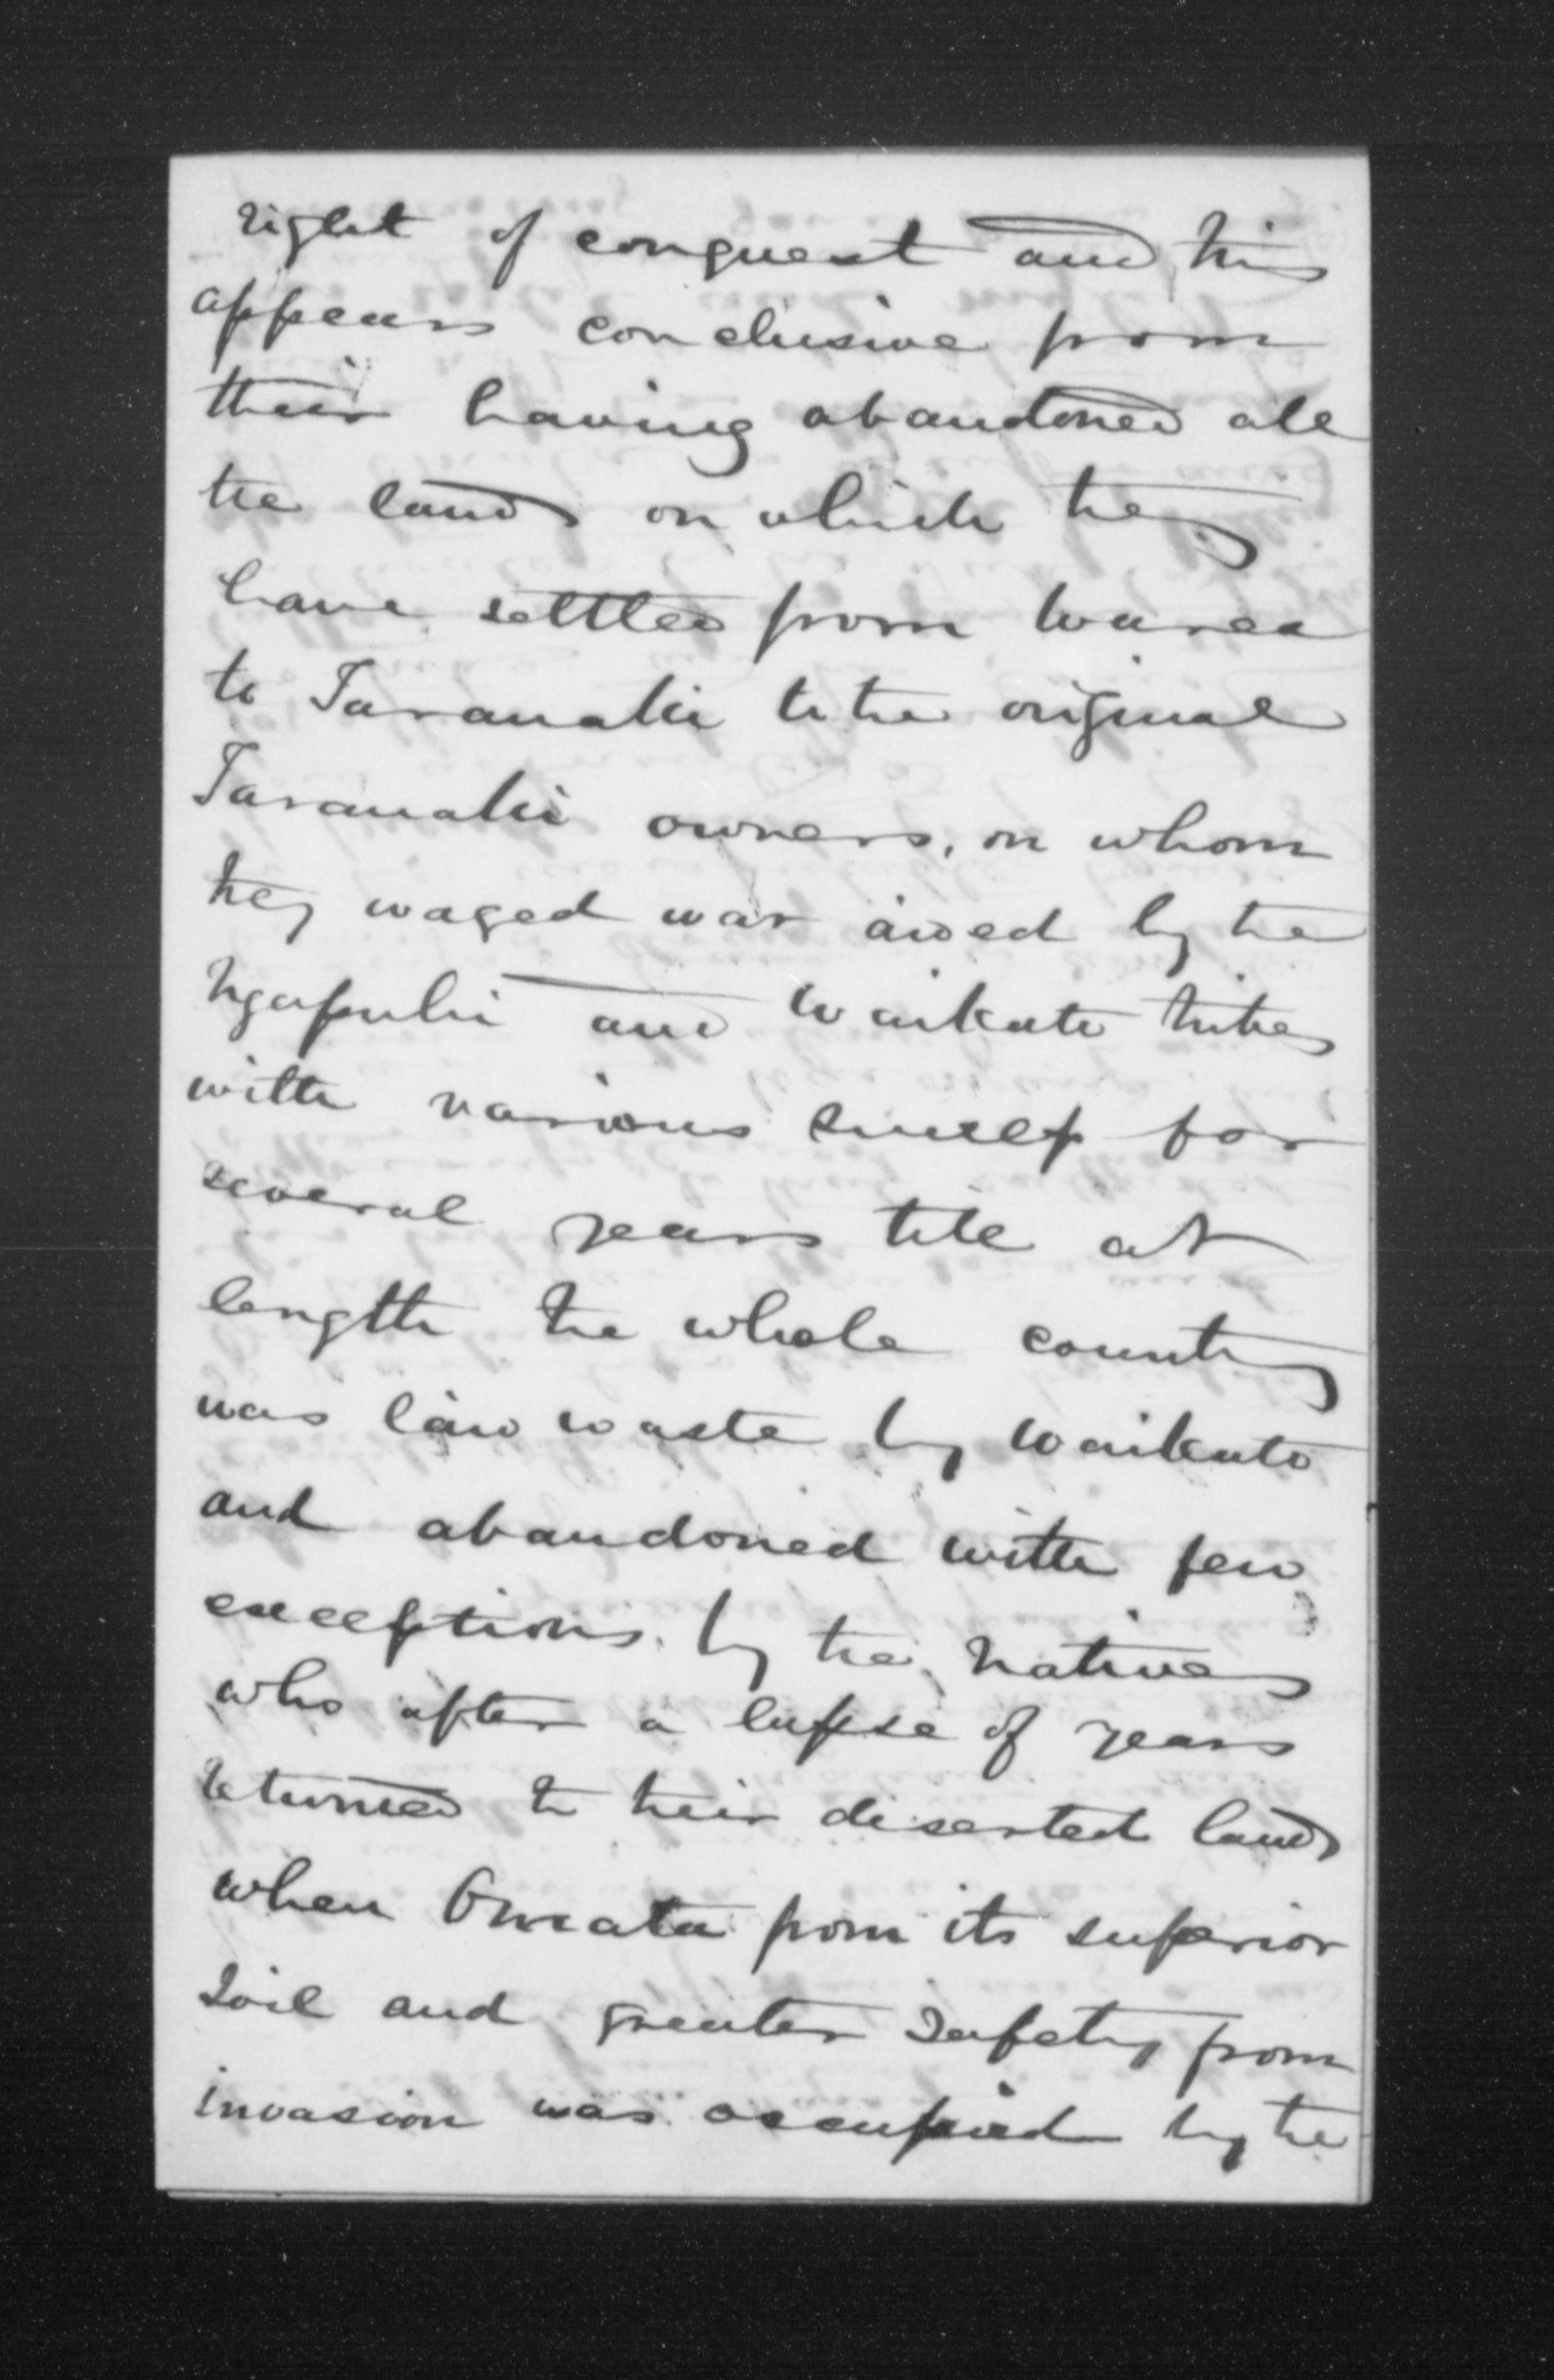 right of conquest and this
appears conclusive from
their having abandoned all
the land on which they
have settled from Warea
to Taranaki to the original
Taranaki owners, on whom
they waged war aided by the
Ngapuhi and Waikato tribes
with various success for
several years till at
length the whole country
was laid waste by Waikato
and abandoned with few
exceptions by the Natives
who after a lapse of years
returned to their diserted lands
when Omata from its superior
soil and greater safety from
invasion was occupied by the